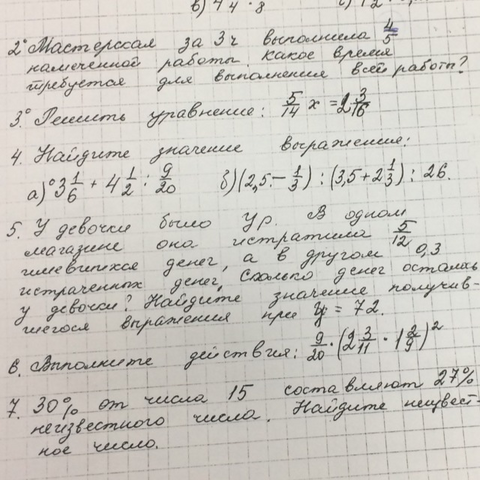 в) 4 4 · 8
2° Мастерская за 3 ч выполнила 4/5
намеченной работы. Какое время
требуется для выполнения всей работы?
3° Решить уравнение: 5/14 x = 2 3/16
4. Найдите значение выражения:
а)° 3 1/6 + 4 1/2 : 9/20 б) (2,5 - 1/3) : (3,5 + 2 1/3) : 26.
5. У девочки было y р. В одном
магазине она истратила 5/12
имевшихся денег, а в другом 0,3
истраченных денег, сколько денег осталось
у девочки? Найдите значение получив-
шегося выражения при y = 72.
6. Выполните действия: 9/20 · (2 3/11 · 1 2/9)²
7. 30% от числа 15 составляют 27%
неизвестного числа. Найдите неизвест-
ное число.